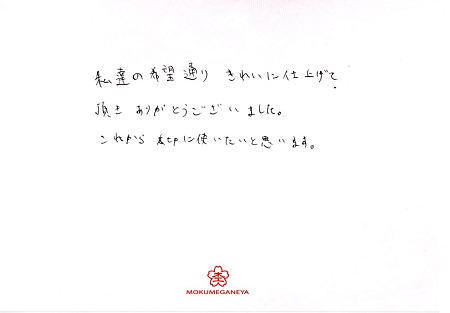 私達の希望通り きれいに仕上げて
頂き ありがとうございました。
これから 大切に使いたいと思います。
MOKUMEGANEYA